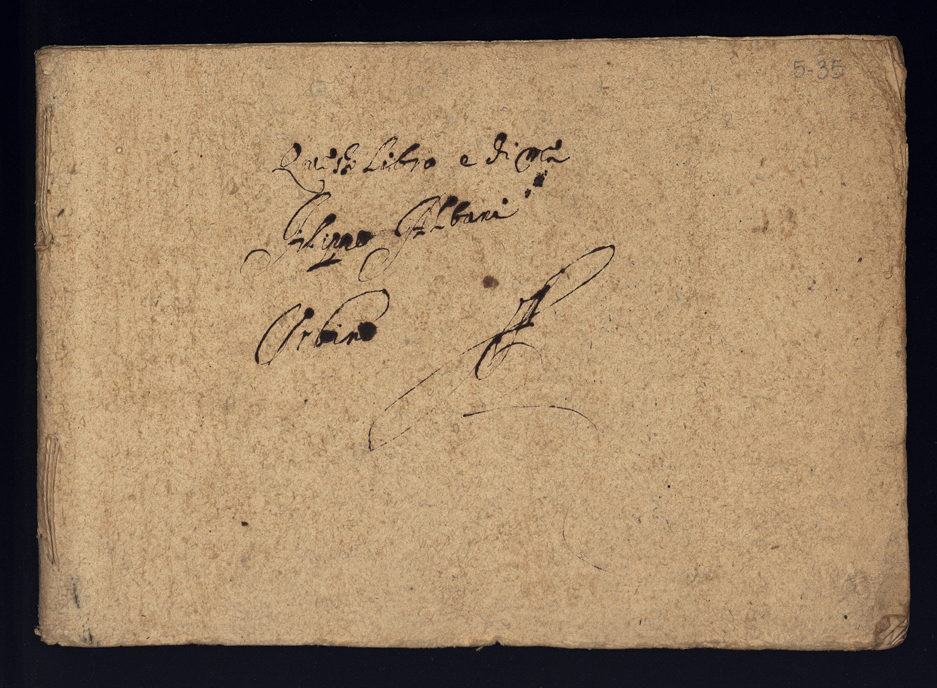 5-35
Questo Libro e di me
Filippo Albani
Orbino